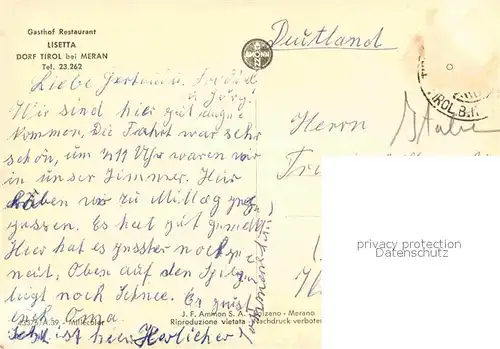 Gasthof Restaurant
LISETTA
DORF TIROL bei MERAN
Tel. 23.262
Deutland
Liebe
u. Jörg!
Wir sind hier gut ange
kommen. Die Fahrt war sehr
schön, um 1/2 11 Uhr waren wir
in unser Zimmer. Hier
haben wir zu Mittag geg
gessen. Es hat gut
Hier hat es gestern noch ge
neit, Oben auf den
liegt noch Schnee. Es grüst
euch Oma
ist hier Herlicher
Herrn
Italien
TIROL B.
privacy protection
Datenschutz
Millecolor
J. F. Ammon S. A. Bolzano - Merano
Riproduzione vietata - Nachdruck verboten